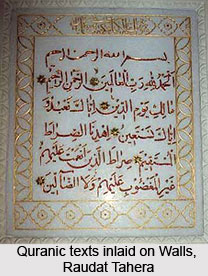 بسم الله الرحمن الرحيم
الحمد لله رب العالمين الرحمن الرحيم
مالك يوم الدين اياك نعبد و
اياك نستعين اهدنا الصراط
المستقيم صراط الذين انعمت عليهم
غير المغضوب عليهم ولا الضالين
Quranic texts inlaid on Walls,
Raudat Tahera